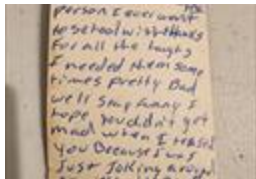 person I ever went
to school with thanks
for all the laughs
I needed them some
times pretty Bad
well stay funny I
hope you didn't get
mad when I teased
you Because I was
Just Joking around